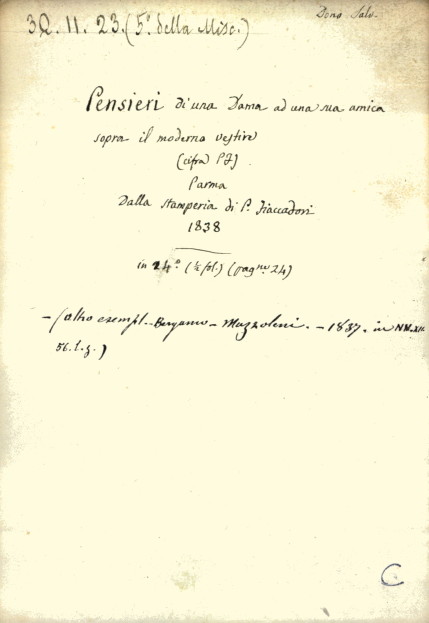 3Q. 11. 23. (5º della Misc.)
Dono Salv.
Pensieri di una Dama ad una sua amica
sopra il moderno vestire
(cifra P.J)
Parma
Dalla Stamperia di P. Fiaccadori
1838
in 24º (½ fol.) (pag.ne 24)
- (altro esempl. - Bergamo - Mazzoleni. - 1837. in NN.XII.
56. l. z.)
C